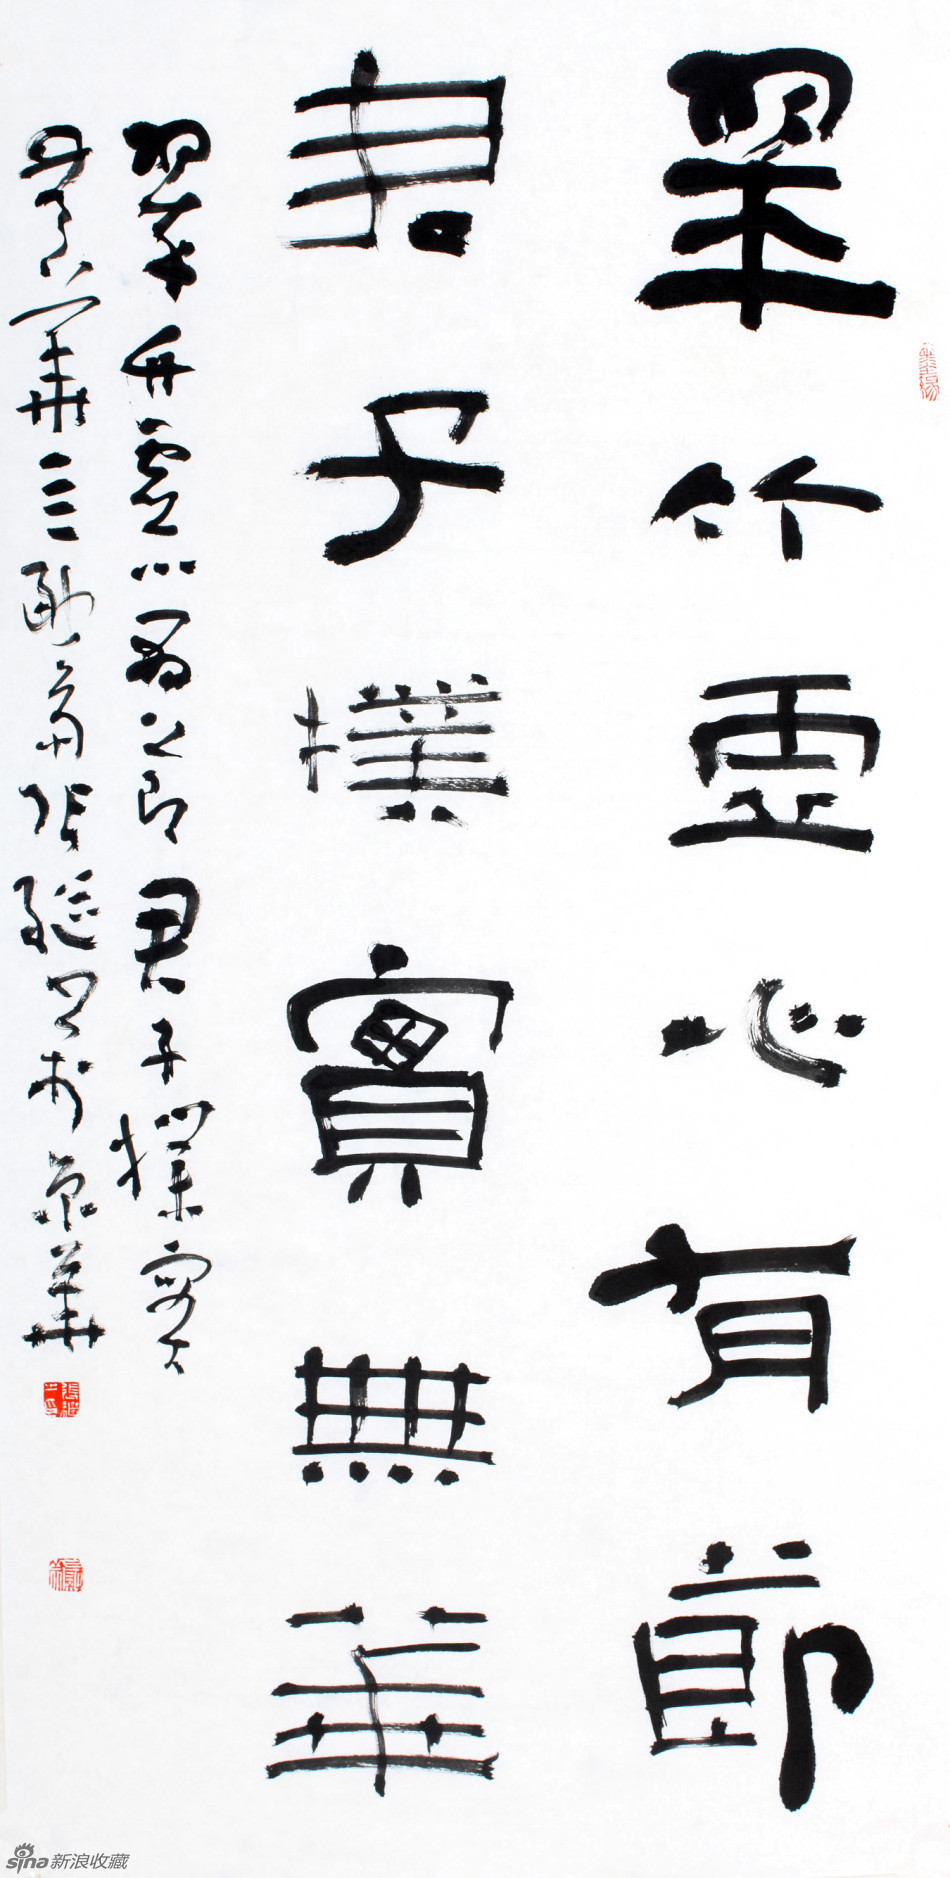 翠竹虛心有節
君子樸實無華
翠竹虛心有節君子樸實
無華 張繼書於京華
張繼之印
sina新浪收藏